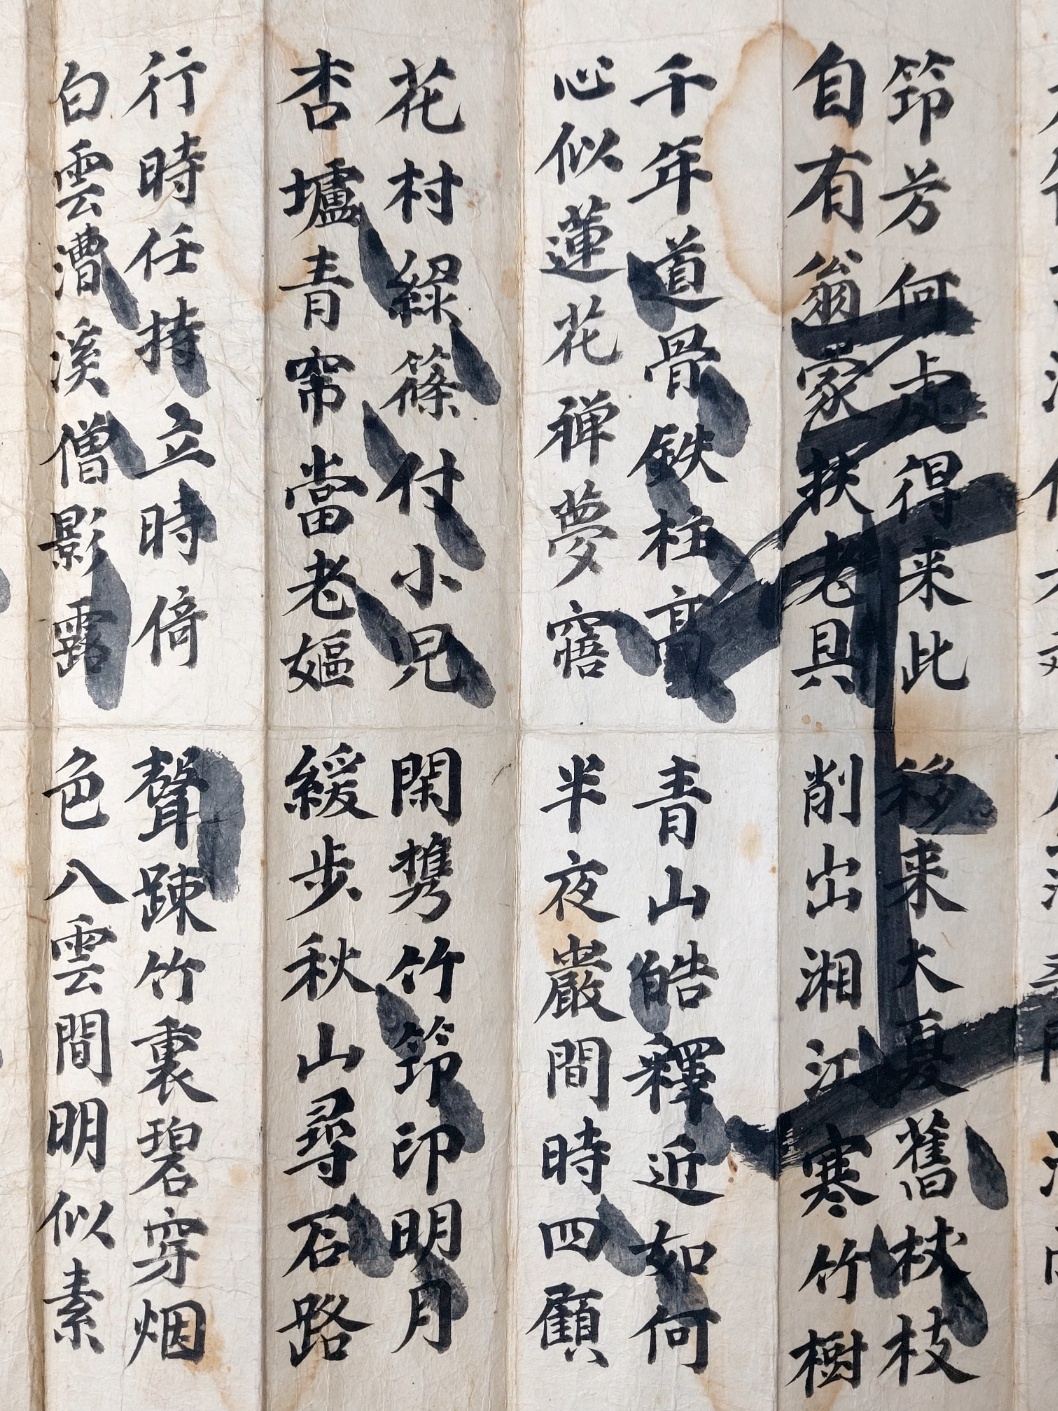 筇芳何處得来此
自有翁家扶老具
千年道骨鉄柱高
心似蓮花禅夢寤
花村緑篠付小児
杏壚青帘當老嫗
行時任持立時倚
白雲漕渓僧影露
移来大夏舊杖枝
削出湘江寒竹樹
青山皓釋近如何
半夜巖間時四顧
閑携竹筇印明月
緩歩秋山尋石路
聲踈竹裏碧穿烟
色八雲間明似素